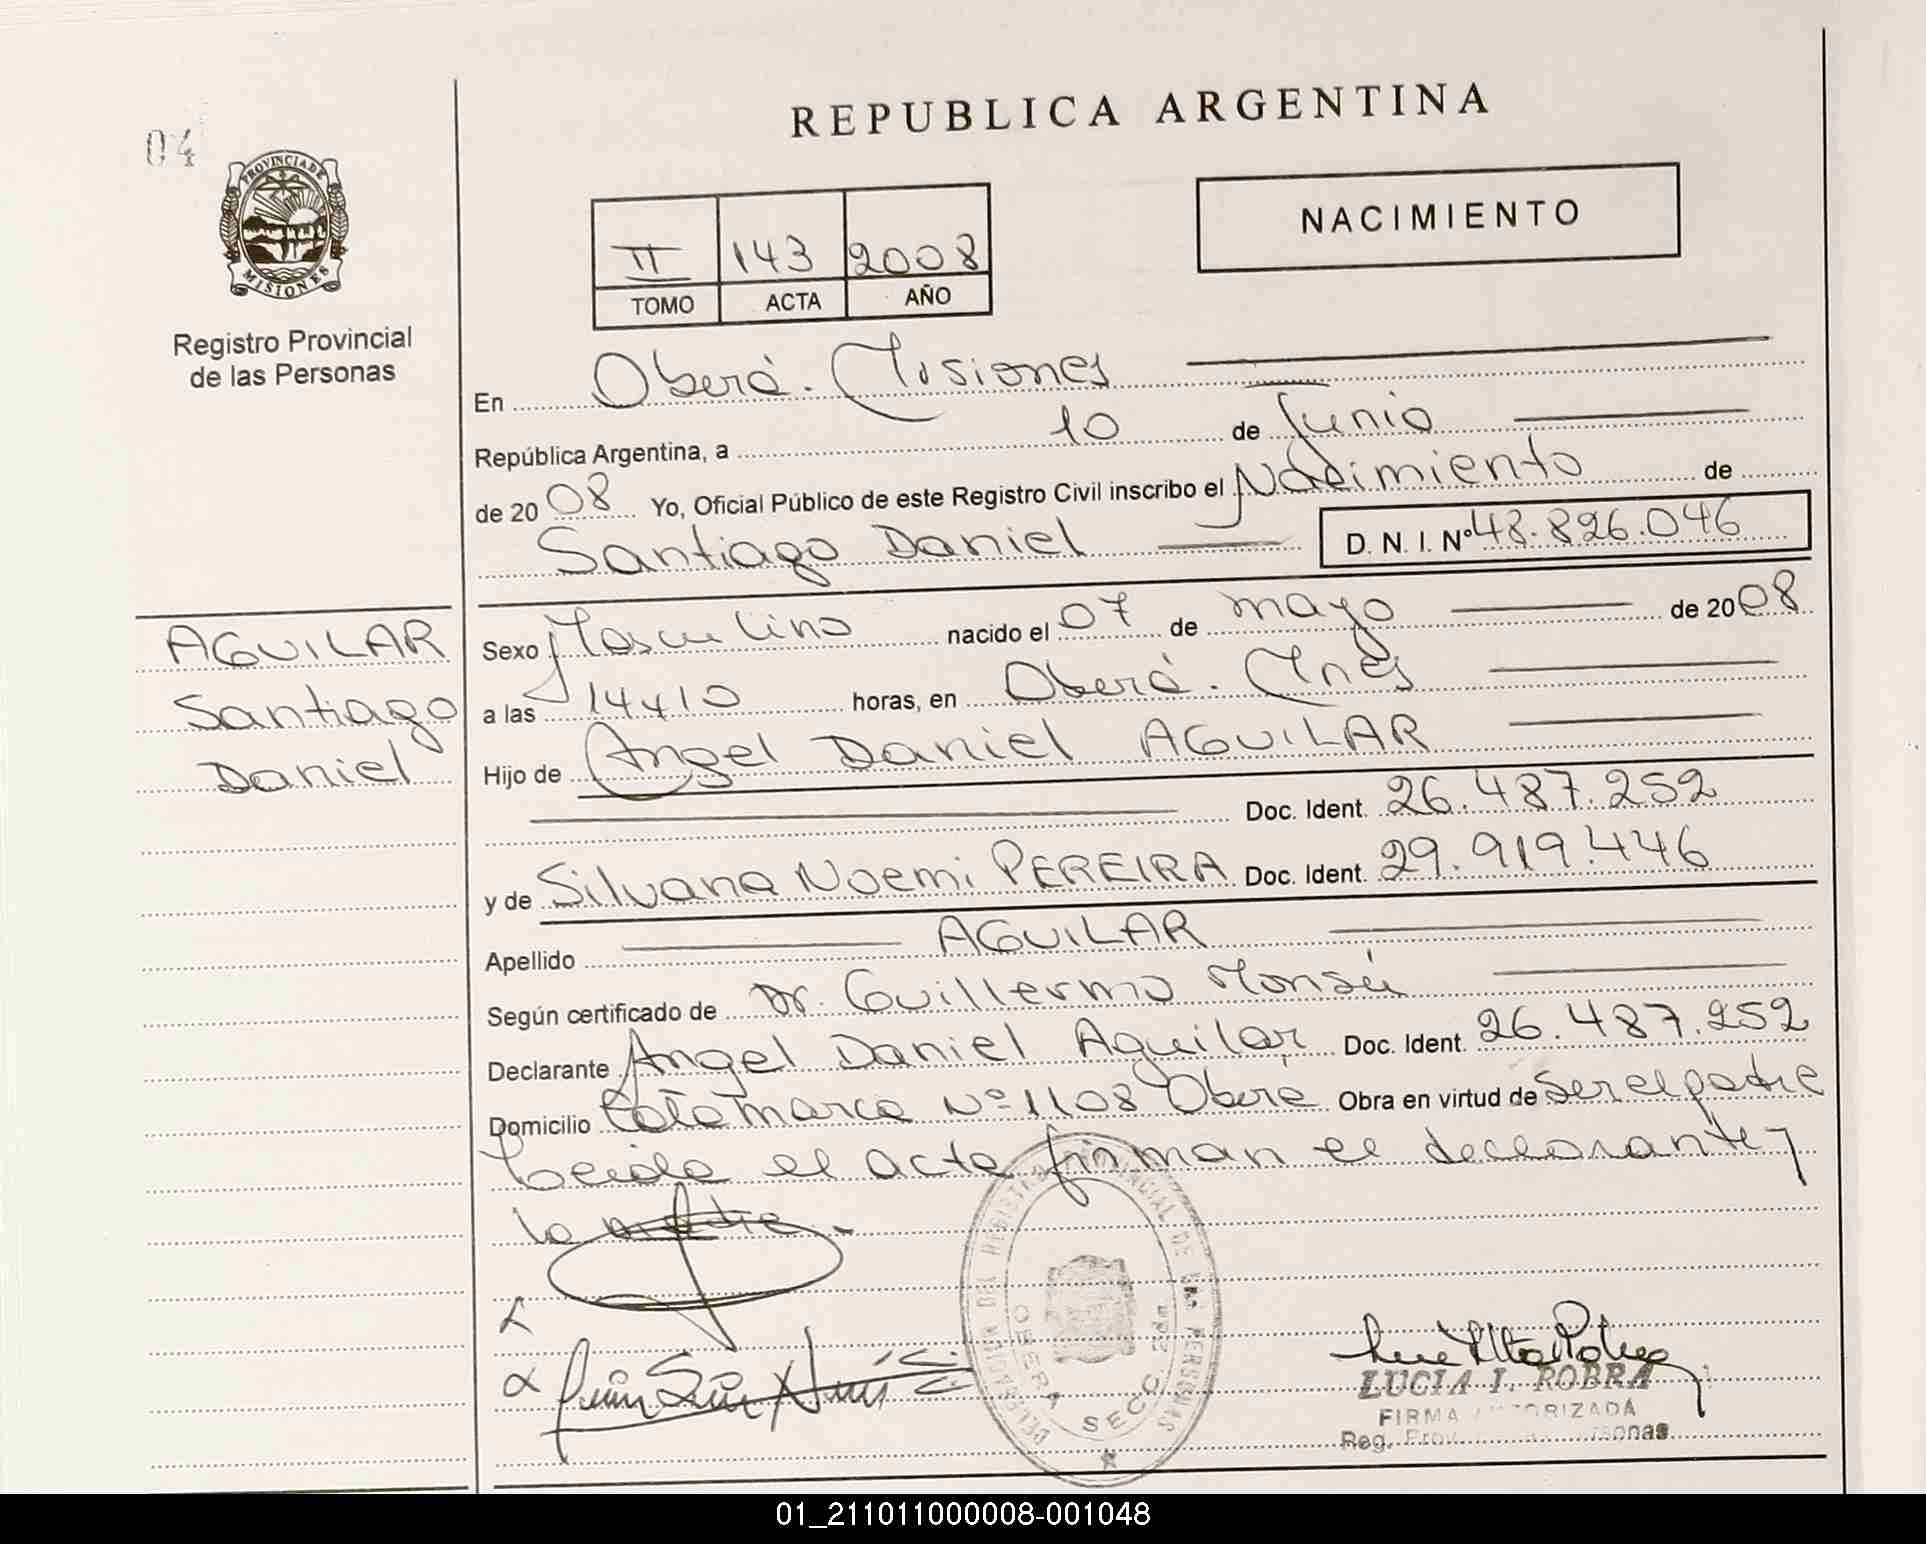 REPUBLICA ARGENTINA
04
PROVINCIA DE MISIONES
Registro Provincial
de las Personas
NACIMIENTO
II 143 2008
TOMO ACTA AÑO
En Oberá. Misiones
República Argentina, a 10 de Junio
de 20 08 Yo, Oficial Público de este Registro Civil inscribo el Nacimiento de
Santiago Daniel D. N. I. Nº 48.826.046
AGUILAR
Santiago
Daniel
Sexo Masculino nacido el 07 de mayo de 20 08
a las 14 y 10 horas, en Oberá. Mnes
Hijo de Angel Daniel AGUILAR
Doc. Ident. 26.487.252
y de Silvana Noemi PEREIRA Doc. Ident. 29.919.446
Apellido AGUILAR
Según certificado de Dr. Guillermo
Declarante Angel Daniel Aguilar Doc. Ident. 26.487.252
Domicilio Catamarca Nº 1108 Oberá Obra en virtud de ser el padre
Leida el acta firman el declarante y
la madre.
DELEGACION DEL REGISTRO PROVINCIAL DE LAS PERSONAS
OBERA SECC. 2da
LUCIA I. ROBRA
FIRMA AUTORIZADA
Reg. Prov. Personas
01_211011000008-001048